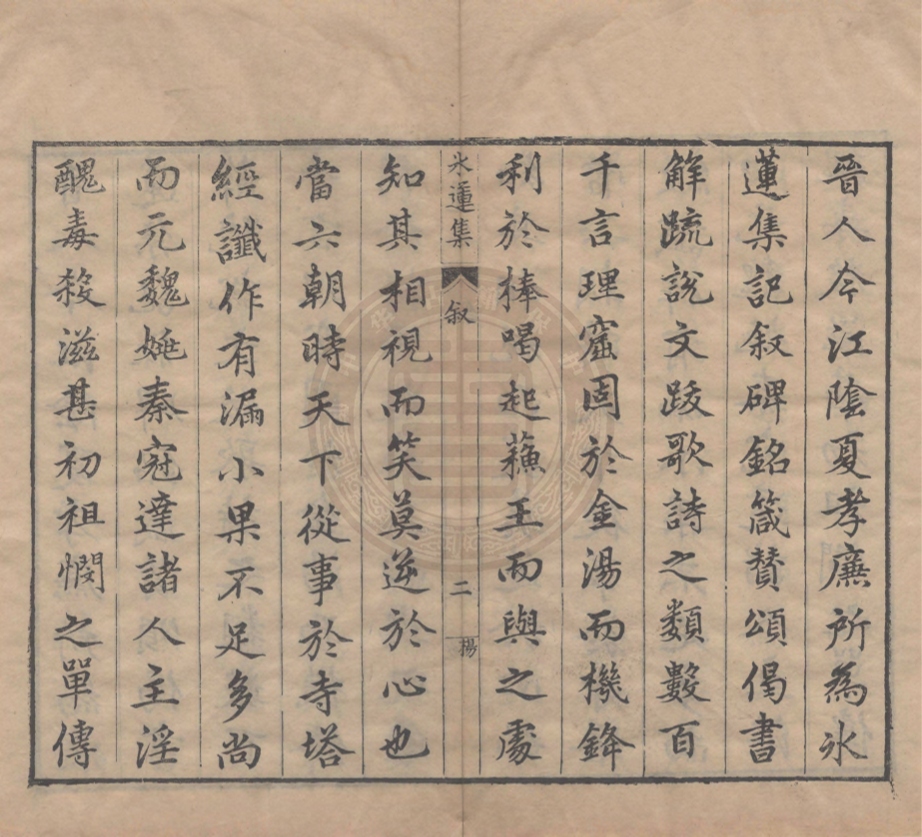 晉人今江陰夏孝廉所為氷
蓮集記叙碑銘箴贊頌偈書
解䟽說文跋歌詩之類數百
千言理窟固於金湯而機鋒
利於棒喝起蘓王而與之處
氷蓮集
叙
二
楊
知其相視而笑莫逆於心也
當六朝時天下從事於寺塔
經讖作有漏小果不足多尚
而元魏姚秦寇達諸人主淫
醜毒殺滋甚初祖憫之單傳